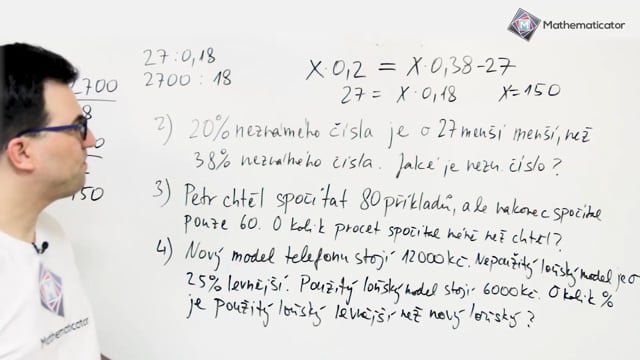 Mathematicator
27 : 0,18
2700 : 18
2700
150
x · 0,2 = x · 0,38 - 27
27 = x · 0,18 x = 150
2) 20% neznámého čísla je o 27 menší menší, než
38% neznámého čísla. Jaké je nezn. číslo?
3) Petr chtěl spočítat 80 příkladů, ale nakonec spočítal
pouze 60. O kolik procet spočítal méně než chtěl?
4) Nový model telefonu stojí 12000 Kč. Nepoužitý loňský model je o
25% levnější. Použitý loňský model stojí 6000 Kč. O kolik %
je použitý loňský levnější než nový loňský?
Mathematicator